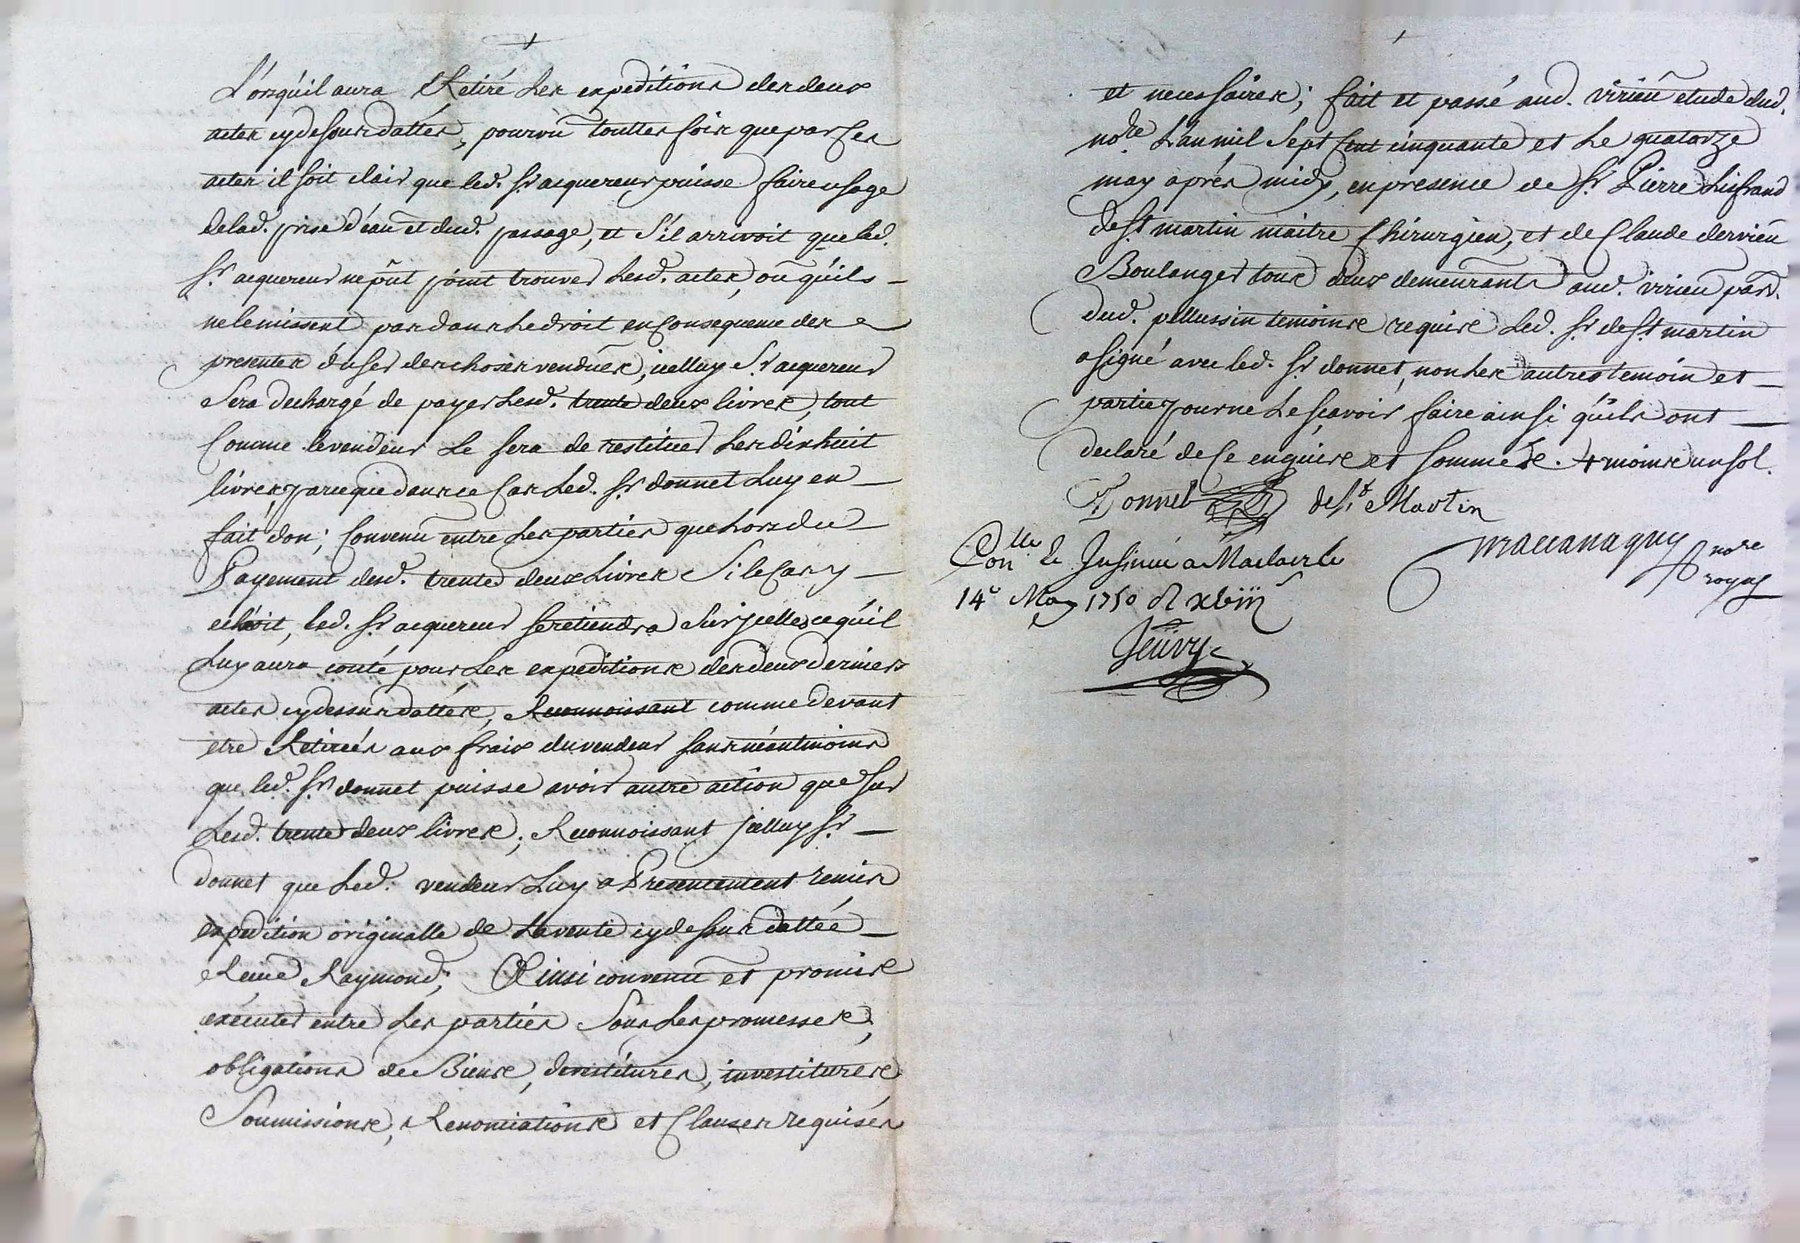 Lorsqu'il aura Retiré Les expeditions des deux
actes cy dessus dattés, pourvû touttes fois que par Ces
actes il soit clair que led. Sr acquereur puisse faire usage
de lad. prise d'eau et dud. passage, et S'il arrivoit que led.
Sr acquereur ne pût point trouver Lesd. actes, ou qu'ils
ne le missent pas dans Le droit en Consequence des
presentes d'user des choses venduës, icelluy Sr acquereur
Sera dechargé de payer Lesd. trente deux livres, tout
Comme le vendeur Le sera de restituer Les dix huit
livres, parce que dans ce Cas Led. Sr donnet Luy en
fait don; Convenu entre Les parties que Lors du
Payement desd. trente deux Livres Si le Cas y
echoit, led. Sr acquereur se retiendra Sur jcelles ce qu'il
Luy aura couté pour Les expeditions des deux derniers
actes cy dessus dattés, Reconnoissant comme devant
etre Retirées aux fraix du vendeur sans néantmoins
que led. Sr donnet puisse avoir autre action que sur
Lesd. trente deux livres; Reconnoissant jcelluy Sr
donnet que Led. vendeur Luy a Presentement remis
expedition originalle de La vente cy dessus dattée
Reçuë Raymond; Ainsi convenu et promis
exécuter entre Les parties Sous Les promesses,
obligations de Biens, devestitures, investitures
Soumissions, Renontiations et Clauses requises
et necessaires; fait et passé aud. virieu etude dud.
nore. L'an mil Sept Cent cinquante et Le quatorze
may après midy, en presence de Sr Pierre Lisfrand
de St martin maitre Chirurgien, et de Claude dervieu
Boulanger tous deux demeurants aud. virieu parr.
dud. pellussin temoins requis Led. Sr de St martin
a signé avec led. Sr donnet, non Les autres temoin et
partie pour ne Le sçavoir faire ainsi qu'ils ont
declaré de Ce enquis et sommés. moins un sol.
Donnet de St Martin
Conlle. et Insinué a Maclas le
14e May 1750
nore
royal